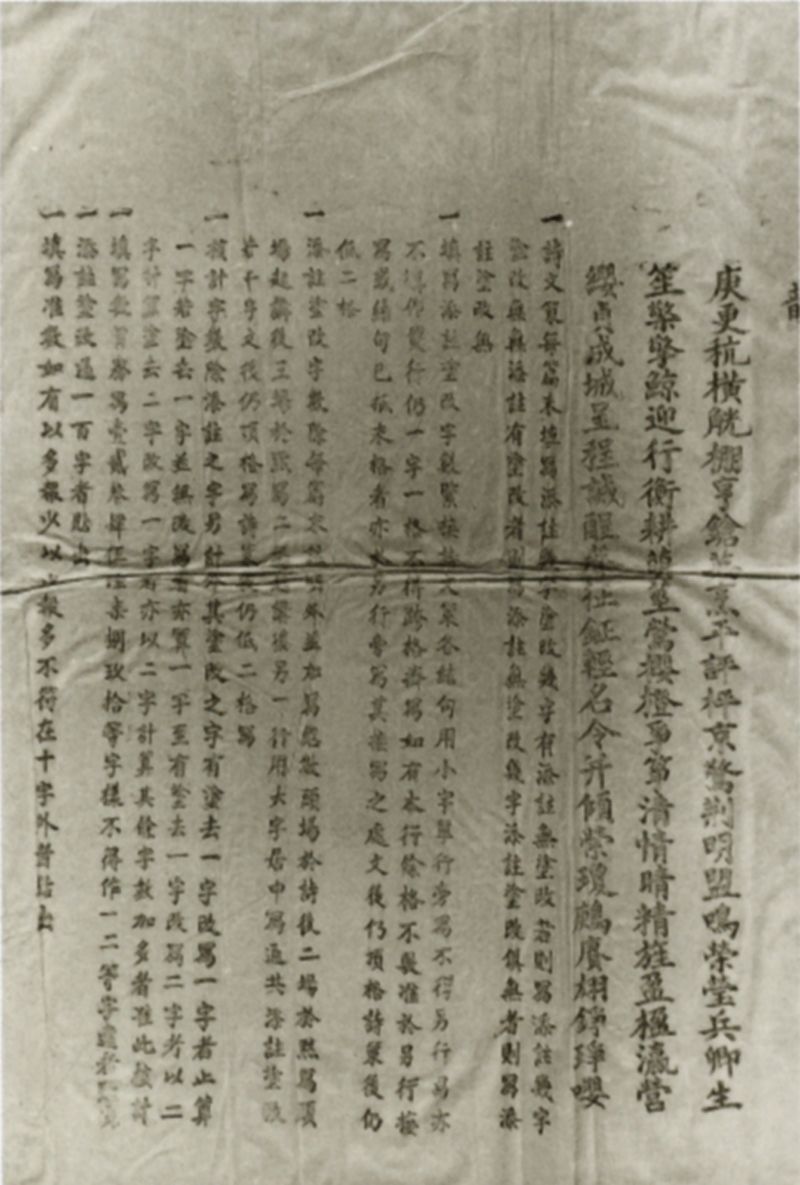 韻
庚更秔橫觥棚亨鎗烹平評枰京驚荆明盟鳴榮瑩兵卿生
笙檠擎鯨迎行衡耕莖鶯櫻橙爭箏清情晴精旌盈楹瀛營
纓貞成城呈程誠醒鉦輕名令并傾縈瓊鶊賡栩錚琤嚶
一詩文策每篇末填寫添註幾字塗改幾字有添註無塗改者則寫添註幾字
塗改無無添註有塗改者則寫添註無塗改幾字添註塗改俱無者則寫添
註塗改無
一填寫添註塗改字數緊接詩文策各結句用小字單行旁寫不得另行寫亦
不得作雙行仍一字一格不得跨格齊寫如有本行餘格不敷准於另行接
寫或結句已抵末格者亦於另行旁寫其接寫之處文後仍頂格詩策後仍
低二格
一添註塗改字數除每篇末註明外並加寫總數頭場於詩後二場於默寫頂
場起講後三場於默寫二場起講後另一行用大字居中寫通共添註塗改
若干字文後仍頂格寫詩策後仍低二格寫
一核計字數除添註之字另計外其塗改之字有塗去一字改寫一字者止算
一字若塗去一字並無改寫者亦算一字至有塗去一字改寫二字者以二
字計算塗去二字改寫一字者亦以二字計算其餘字數加多者准此核計
一填寫數目務寫壹貳叁肆伍陸柒捌玖拾等字樣不得作一二等字違者
一添註塗改過一百字者貼出
一填寫准數如有以多報少以少報多不符在十字外者貼出